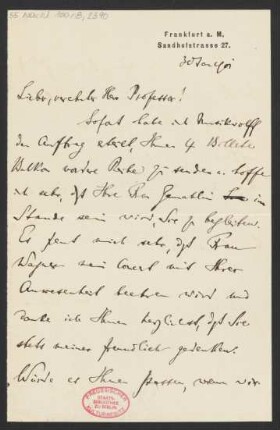 55 Nachl. 100/B, 2590
Frankfurt a. M.
Sandhofstrasse 27.
Lieber, verehrter Herr Professor!
Sofort habe ich Musikwolff
den Auftrag erteilt, Ihnen 4 Billete
Balkon vordere Reihe zu senden u. hoffe
ich sehr, dass Ihre Frau Gemahlin im
Stande sein wird, Sie zu begleiten.
Es freut mich sehr, dass Frau
Wagner mein Concert mit Ihrer
Anwesenheit beehren wird und
danke ich Ihnen herzlichst, dass Sie
stets meiner freundlich gedenken.
Würde es Ihnen passen, wenn wir